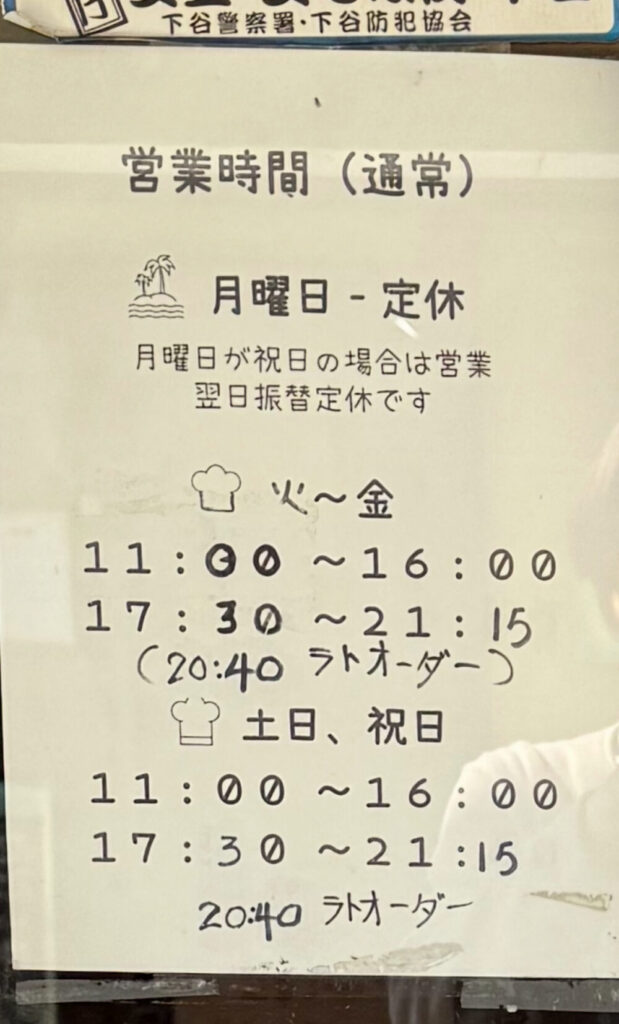 下谷警察署・下谷防犯協会
営業時間（通常）
月曜日 - 定休
月曜日が祝日の場合は営業
翌日振替定休です
火〜金
11:00 〜16:00
17:30 〜21:15
(20:40 ラトオーダー)
土日、祝日
11:00 〜16:00
17:30 〜21:15
20:40 ラトオーダー